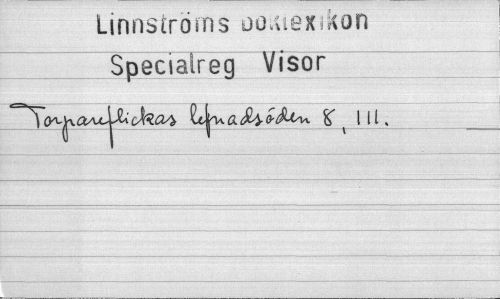 Linnströms Boklexikon
Specialreg Visor
Torpareflickas lefnadsöden 8, III.